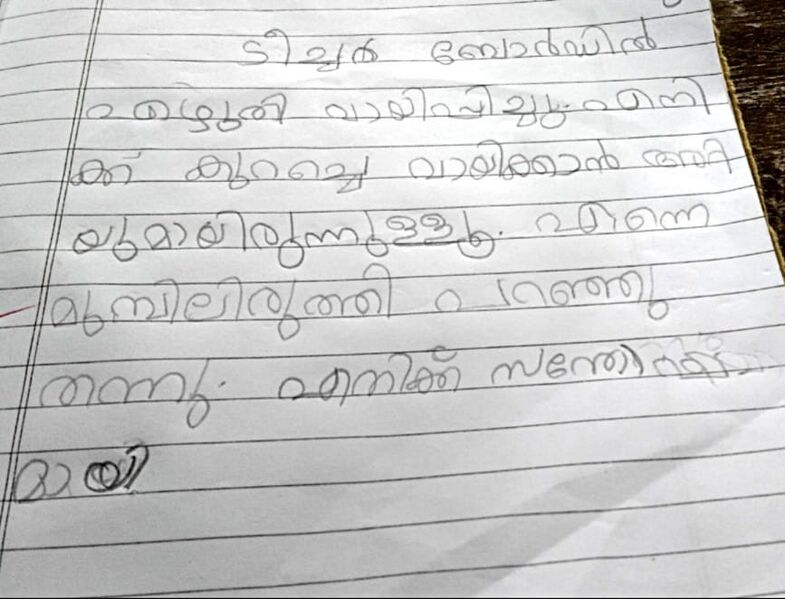 ടീച്ചർ ബോർഡിൽ
എഴുതി വായിപ്പിച്ചു. എനി
ക്ക് കുറച്ചെ വായിക്കാൻ അറി
യുമായിരുന്നുള്ളൂ. എന്നെ
മുമ്പിലിരുത്തി പറഞ്ഞു
തന്നു. എനിക്ക് സന്തോഷ
മായി